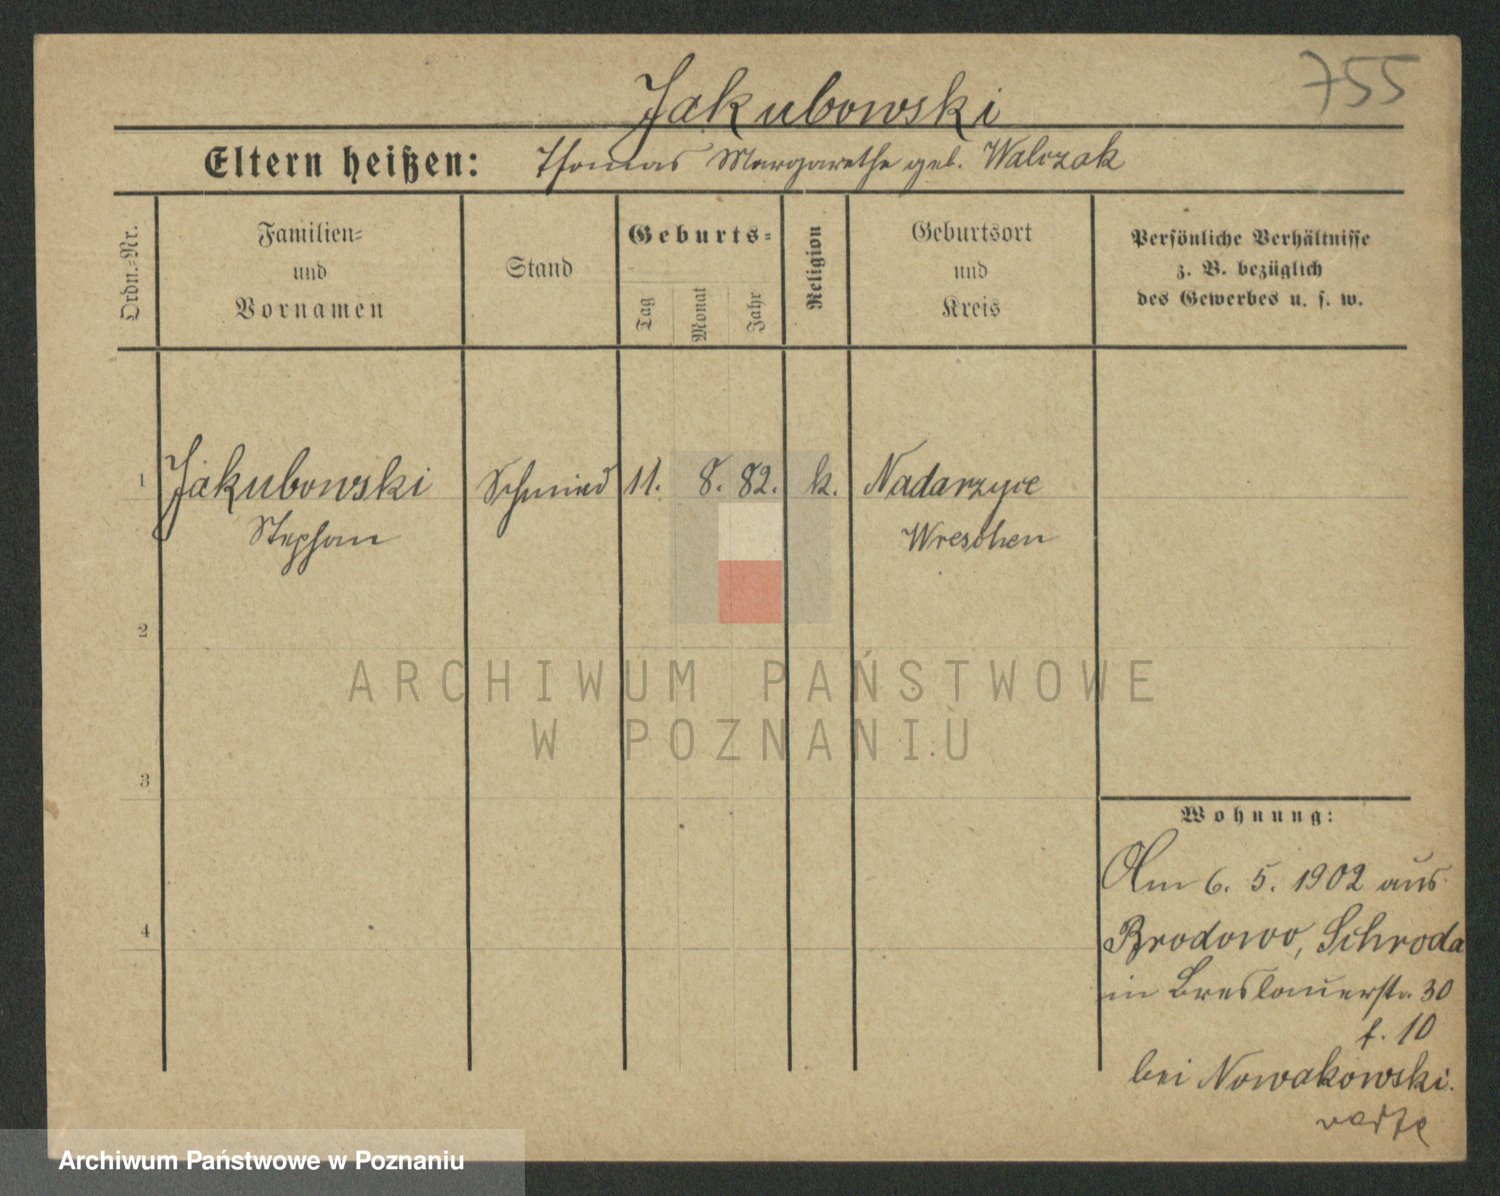 755
Jakubowski
Eltern heißen: Thomas Margarethe geb. Walczak
Ordn.-Nr.
Familien-
und
Vornamen
Stand
Geburts-
Tag
Monat
Jahr
Religion
Geburtsort
und
Kreis
Persönliche Verhältnisse
z. B. bezüglich
des Gewerbes u. s. w.
1 Jakubowski Schmied 11. 8. 82. k. Nadarzyce
Stephan Wreschen
2
ARCHIWUM PAŃSTWOWE
W POZNANIU
3
Wohnung:
Am 6. 5. 1902 aus
4
Brodowo, Schroda
in Breslauerstr. 30
t. 10
bei Nowakowski.
Archiwum Państwowe w Poznaniu